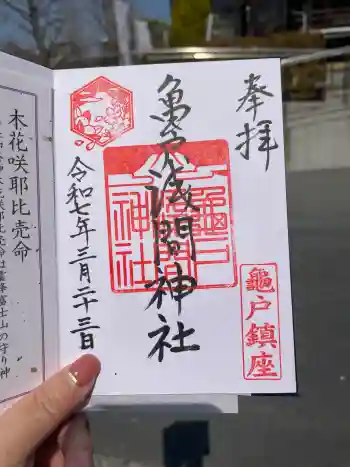 奉拝
亀戸浅間神社
令和七年三月二十三日
亀戸浅間神社
龜戸鎮座
木花咲耶比売命